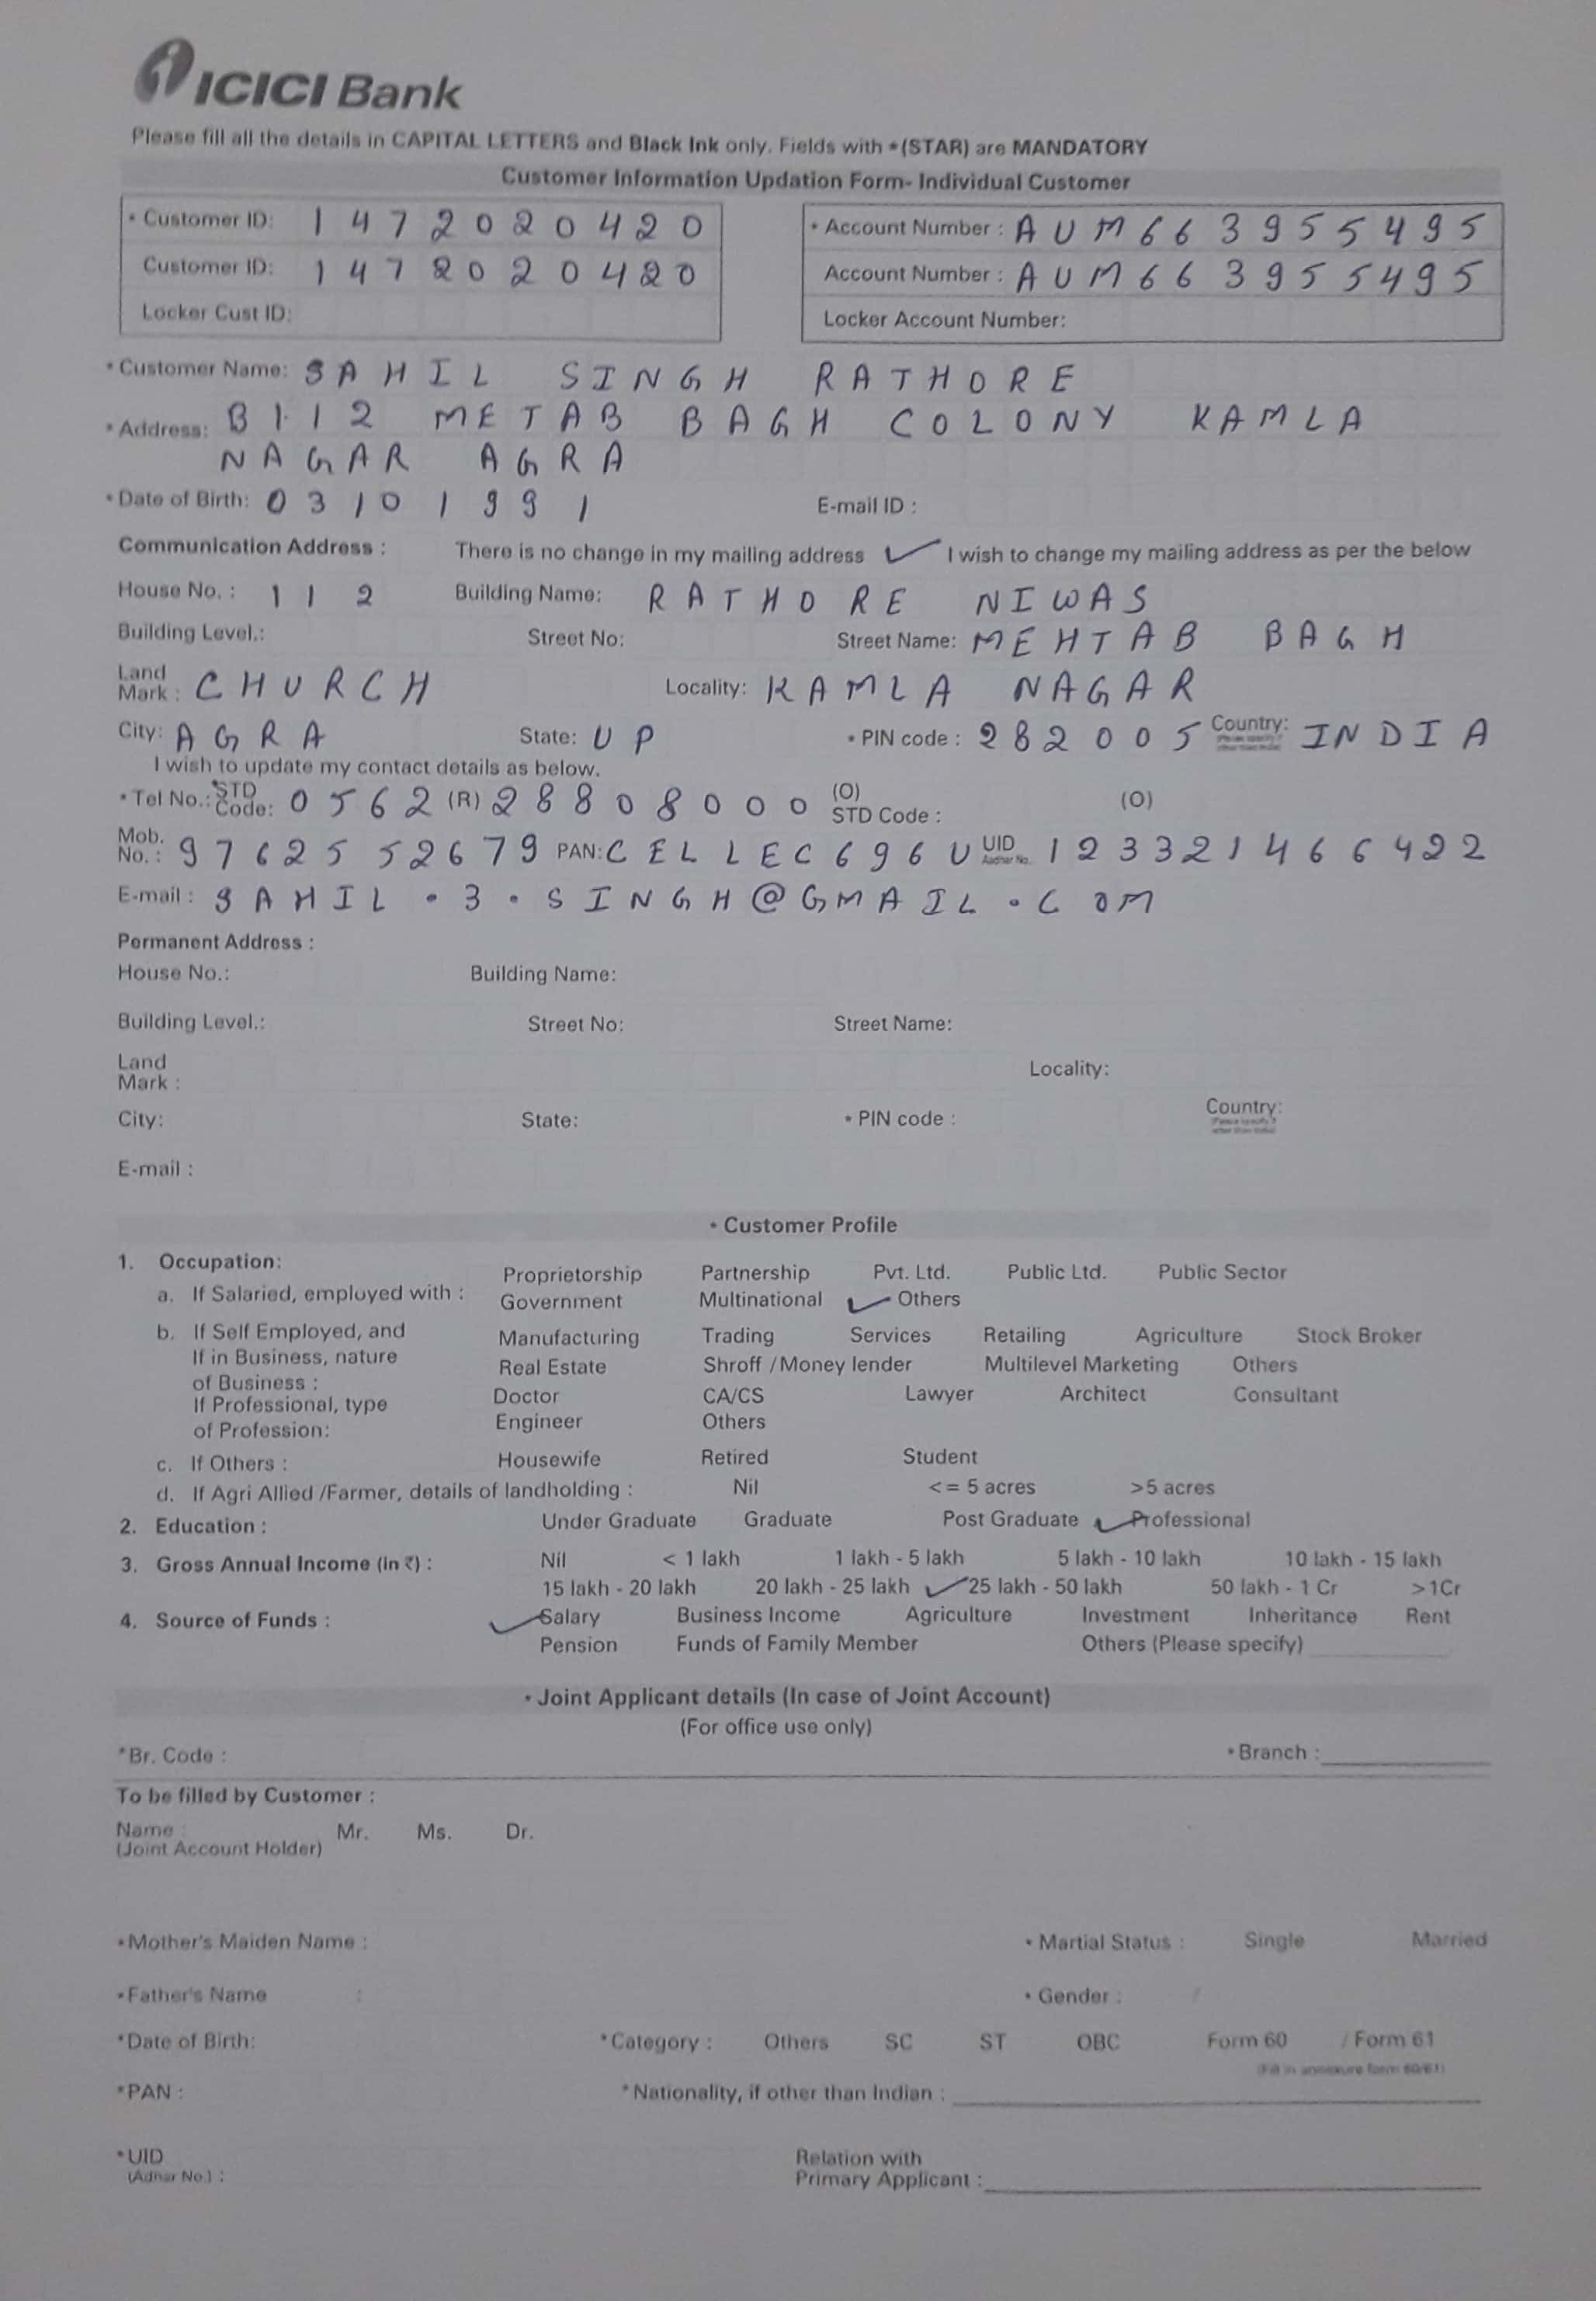 ICICI Bank
Please fill all the details in CAPITAL LETTERS and Black Ink only. Fields with *(STAR) are MANDATORY
Customer Information Updation Form- Individual Customer
* Customer ID: 1472020420 * Account Number : AUM663955495
Customer ID: 1472020420 Account Number : AUM663955495
Locker Cust ID: Locker Account Number:
* Customer Name: SAHIL SINGH RATHORE
* Address: B 112 METAB BAGH COLONY KAMLA
NAGAR AGRA
* Date of Birth: 03101991 E-mail ID :
Communication Address : There is no change in my mailing address ✓ I wish to change my mailing address as per the below
House No. : 112 Building Name: RATHORE NIWAS
Building Level.: Street No: Street Name: MEHTAB BAGH
Land Mark : CHURCH Locality: KAMLA NAGAR
City: AGRA State: UP * PIN code : 282005 Country: INDIA
I wish to update my contact details as below.
* Tel No.: *STD Code: 0562 (R) 28808000 (O) STD Code : (O)
Mob. No. : 9762552679 PAN: CELLEC696U UID Aadhar No. 123321466422
E-mail : SAHIL.3.SINGH@GMAIL.COM
Permanent Address :
House No.: Building Name:
Building Level.: Street No: Street Name:
Land Mark : Locality:
City: State: * PIN code : Country:
E-mail :
* Customer Profile
1. Occupation:
Proprietorship Partnership Pvt. Ltd. Public Ltd. Public Sector
a. If Salaried, employed with : Government Multinational ✓ Others
b. If Self Employed, and Manufacturing Trading Services Retailing Agriculture Stock Broker
If in Business, nature Real Estate Shroff /Money lender Multilevel Marketing Others
of Business :
If Professional, type Doctor CA/CS Lawyer Architect Consultant
of Profession: Engineer Others
c. If Others : Housewife Retired Student
d. If Agri Allied /Farmer, details of landholding : Nil <= 5 acres >5 acres
2. Education : Under Graduate Graduate Post Graduate ✓ Professional
3. Gross Annual Income (in ₹) : Nil < 1 lakh 1 lakh - 5 lakh 5 lakh - 10 lakh 10 lakh - 15 lakh
15 lakh - 20 lakh 20 lakh - 25 lakh ✓ 25 lakh - 50 lakh 50 lakh - 1 Cr >1Cr
4. Source of Funds : ✓ Salary Business Income Agriculture Investment Inheritance Rent
Pension Funds of Family Member Others (Please specify)
* Joint Applicant details (In case of Joint Account)
(For office use only)
*Br. Code : * Branch :
To be filled by Customer :
Name : Mr. Ms. Dr.
(Joint Account Holder)
*Mother's Maiden Name : * Martial Status : Single Married
*Father's Name : * Gender : /
*Date of Birth: *Category : Others SC ST OBC Form 60 / Form 61
(Fill in annexure form 60/61)
*PAN : *Nationality, if other than Indian :
*UID Relation with
(Adhar No.) : Primary Applicant :